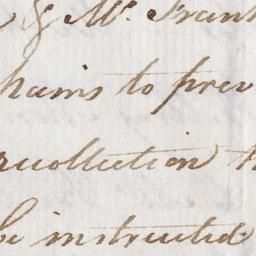 & Mr. Frank
hains to prev
recollection th
be instructed